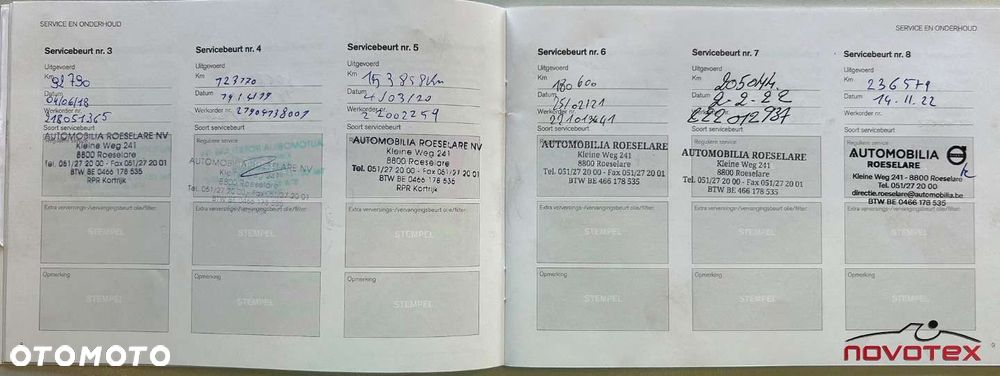 SERVICE EN ONDERHOUD
Servicebeurt nr. 3
Uitgevoerd
Km
92790
Datum
04/06/18
Werkorder nr.
218051365
Soort servicebeurt
AUTOMOBILIA ROESELARE NV
Kleine Weg 241
8800 Roeselare
Tel. 051/27 20 00 - Fax 051/27 20 01
BTW BE 0466 178 535
RPR Kortrijk
Extra verversings-/vervangingsbeurt olie/filter:
STEMPEL
Opmerking
STEMPEL
Servicebeurt nr. 4
Uitgevoerd
Km
Datum
Werkorder nr.
Soort servicebeurt
Reguliere service
AUTOMOBILIA ROESELARE NV
8800 Roeselare
BTW BE 0466 178 535
Extra verversings-/vervangingsbeurt olie/filter:
STEMPEL
Opmerking
STEMPEL
Servicebeurt nr. 5
Uitgevoerd
Km
153858km
Datum
4/03/20
Werkorder nr.
22002259
Soort servicebeurt
AUTOMOBILIA ROESELARE NV
Kleine Weg 241
8800 Roeselare
Tel. 051/27 20 00 - Fax 051/27 20 01
BTW BE 0466 178 535
RPR Kortrijk
Extra verversings-/vervangingsbeurt olie/filter:
STEMPEL
Opmerking
STEMPEL
SERVICE EN ONDERHOUD
Servicebeurt nr. 6
Uitgevoerd
Km
180600
Datum
Werkorder nr.
Soort servicebeurt
Reguliere service
AUTOMOBILIA ROESELARE
Kleine Weg 241
8800 Roeselare
Tel. 051/27 20 00 - Fax 051/27 20 01
BTW BE 466 178 535
Extra verversings-/vervangingsbeurt olie/filter:
STEMPEL
Opmerking
STEMPEL
Servicebeurt nr. 7
Uitgevoerd
Km
205044
Datum
2-2-22
Werkorder nr.
222012987
Soort servicebeurt
Reguliere service
AUTOMOBILIA ROESELARE
Kleine Weg 241
8800 Roeselare
Tel. 051/27 20 00 - Fax 051/27 20 01
BTW BE 466 178 535
Extra verversings-/vervangingsbeurt olie/filter:
STEMPEL
Opmerking
STEMPEL
Servicebeurt nr. 8
Uitgevoerd
Km
236579
Datum
14.11.22
Werkorder nr.
Soort servicebeurt
Reguliere service
AUTOMOBILIA
ROESELARE
Kleine Weg 241 - 8800 Roeselare
Tel. 051/27 20 00
directie.roeselare@automobilia.be
BTW BE 0466 178 535
Extra verversings-/vervangingsbeurt olie/filter:
STEMPEL
Opmerking
9
OTOMOTO
novotex